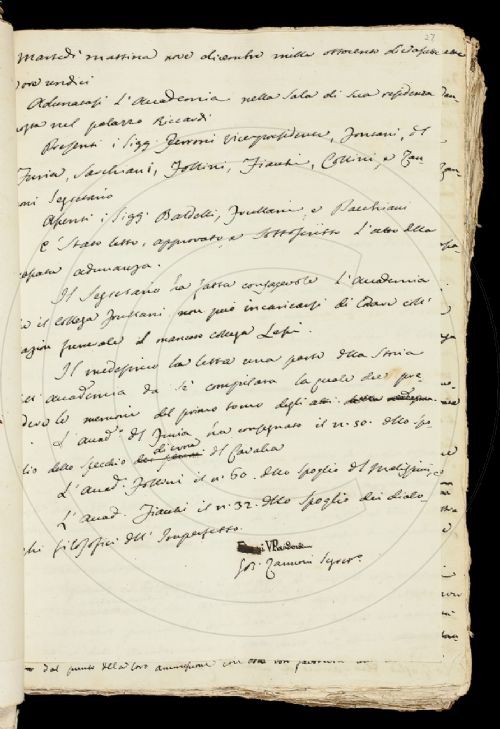 27
Martedì mattina nove dicembre mille ottocento diciassette
ore undici
Adunatasi l'Accademia nella Sala di sua residenza
nel palazzo Riccardi
Presenti i Sigg. Ferroni Vicepresidente, Fontani, del
Furia, Sarchiani, Follini, Fiacchi, Collini, e Zan
oni Segretario
Assenti i Sigg. Baldelli, Frullani, e Bacchiani
È stato letto, approvato, e sottoscritto l'atto della
passata adunanza.
Il Segretario ha fatta consapevole l'Accademia
il collega Frullani non può incaricarsi di
funerale il mancato collega Lessi.
Il medesimo ha letta una parte della Storia
Accademia da sè compilata la quale dee pre
le memorie del primo tomo degli atti.
L'Accad. del Furia ha consegnato il n. 30. dello spo
glio dello specchio di croce del Cavalca
L'Accad. Follini il n. 60. dello spoglio del Malispini, e
L'Accad. Fiacchi il n. 32. dello spoglio dei dialo
ghi filosofici dell'Imperfetto.
Gio. Zannoni Segret.
dal punto della loro ammissione